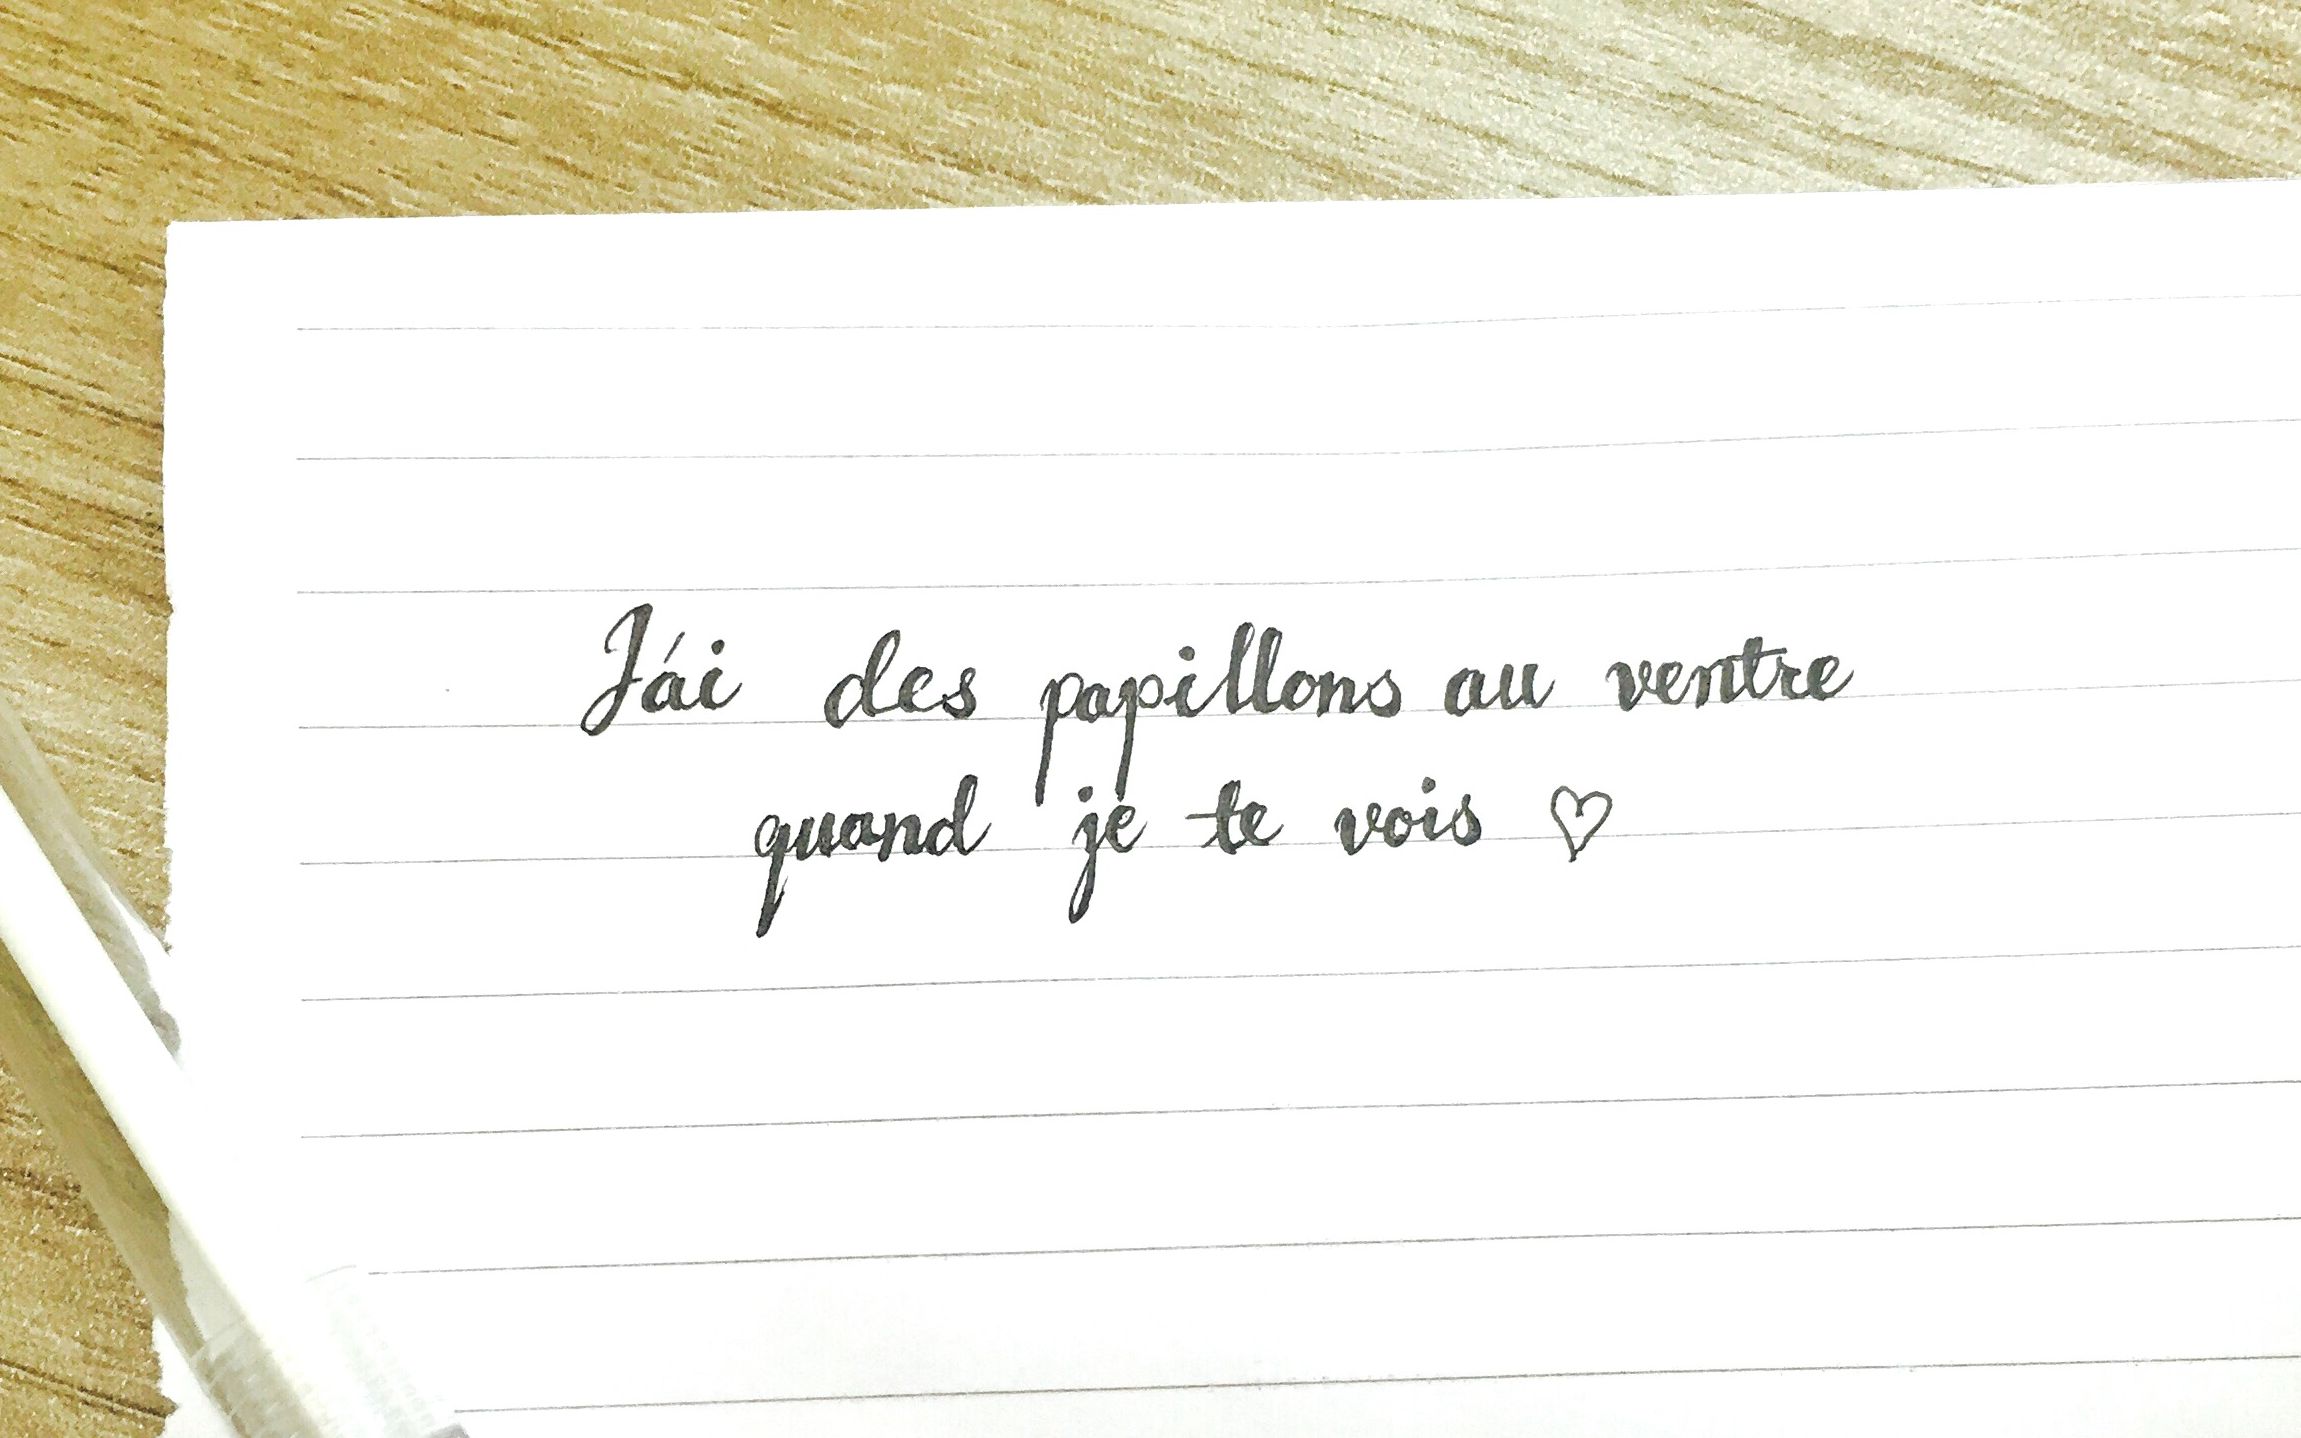 J'ai des papillons au ventre
quand je te vois ♡